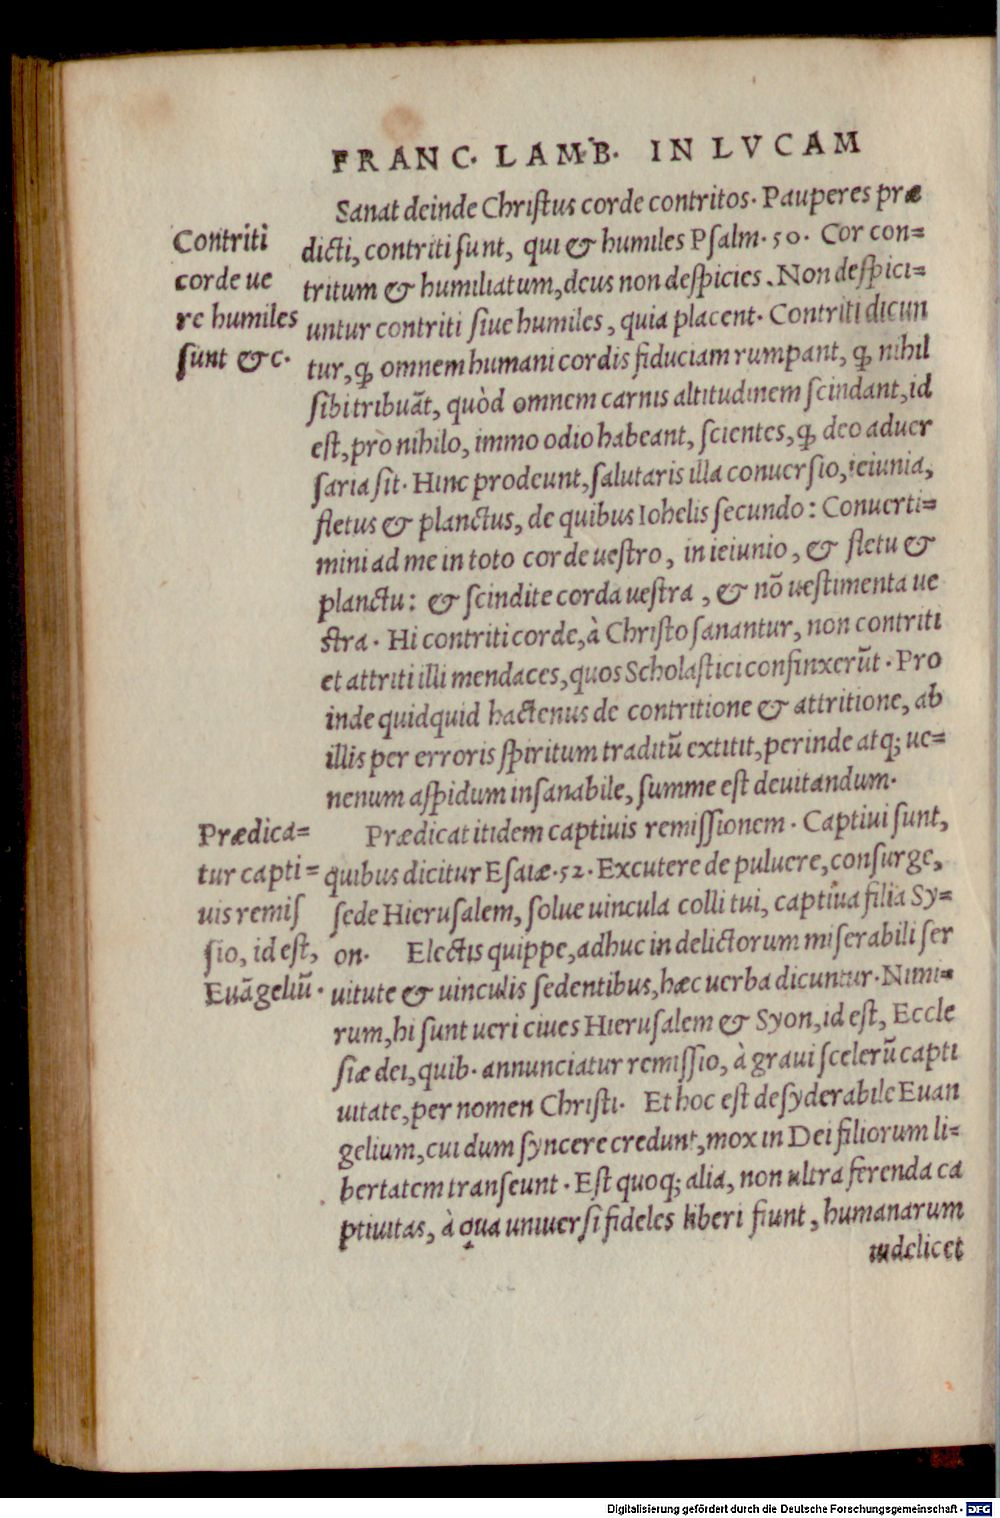 FRANC. LAMB. IN LVCAM
Sanat deinde Chriſtus corde contritos. Pauperes præ
dicti, contriti ſunt, qui & humiles Pſalm. 50. Cor con=
tritum & humiliatum, deus non deſpicies. Non deſpici=
untur contriti ſiue humiles, quia placent. Contriti dicun
tur, ꝙ omnem humani cordis fiduciam rumpant, ꝙ nihil
ſibi tribuãt, quòd omnem carnis altitudinem ſcindant, id
eſt, pro nihilo, immo odio habeant, ſcientes, ꝙ deo aduer
ſaria ſit. Hinc prodeunt, ſalutaris illa conuerſio, ieiunia,
fletus & planctus, de quibus Iohelis ſecundo: Conuerti=
mini ad me in toto corde ueſtro, in ieiunio, & fletu &
planctu: & ſcindite corda ueſtra, & nõ ueſtimenta ue
ſtra. Hi contriti corde, à Chriſto ſanantur, non contriti
et attriti illi mendaces, quos Scholaſtici confinxerũt. Pro
inde quidquid hactenus de contritione & attritione, ab
illis per erroris ſpiritum traditũ extitit, perinde atq; ue=
nenum aſpidum inſanabile, ſumme eſt deuitandum.
Prædicat itidem captiuis remiſſionem. Captiui ſunt,
quibus dicitur Eſaiæ. 52. Excutere de puluere, conſurge,
ſede Hieruſalem, ſolue uincula colli tui, captiua filia Sy=
on. Electis quippe, adhuc in delictorum miſerabili ſer
uitute & uinculis ſedentibus, hæc uerba dicuntur. Nimi=
rum, hi ſunt ueri ciues Hieruſalem & Syon, id eſt, Eccle
ſiæ dei, quib. annunciatur remiſſio, à graui ſcelerũ capti
uitate, per nomen Chriſti. Et hoc eſt deſyderabile Euan
gelium, cui dum ſyncere credunt, mox in Dei filiorum li=
bertatem tranſeunt. Eſt quoq; alia, non ultra ferenda ca
ptiuitas, à qua uniuerſi fideles liberi fiunt, humanarum
uidelicet
Contriti
corde ue
re humiles
ſunt &c.
Prædica=
tur capti=
uis remiſ
ſio, id eſt,
Euãgeliũ.
Digitalisierung gefördert durch die Deutsche Forschungsgemeinschaft - DFG